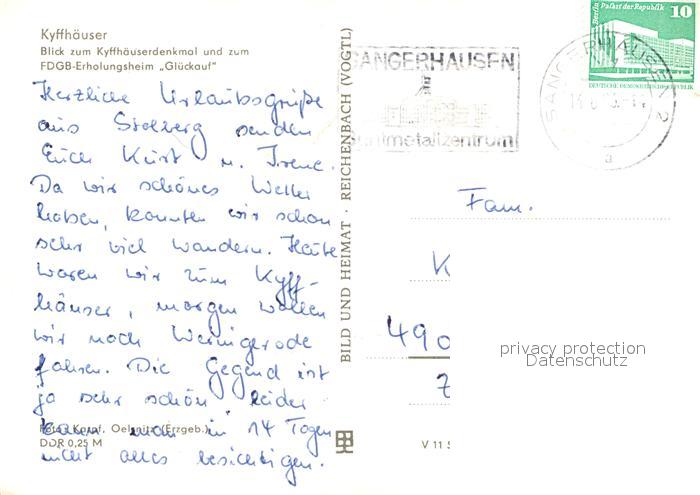 Kyffhäuser
Blick zum Kyffhäuserdenkmal und zum
FDGB-Erholungsheim „Glückauf"
Herzliche Urlaubsgrüße
aus Stolberg senden
Euch Kurt u. Irene.
Da wir schönes Wetter
haben, konnten wir schon
sehr viel wandern. Heute
waren wir zum Kyff-
häuser, morgen wollen
wir nach Wernigerode
fahren. Die Gegend ist
ja sehr schön, leider
kann man in 14 Tagen
nicht alles besichtigen.
Foto: Kempf, Oelsnitz (Erzgeb.)
DDR 0,25 M
BILD UND HEIMAT · REICHENBACH (VOGTL)
V 11 5
SANGERHAUSEN
Buntmetallzentrum
SANGERHAUSEN 2
a
Berlin Palast der Republik
10
DEUTSCHE DEMOKRATISCHE REPUBLIK
Fam.
K
490
Z
privacy protection
Datenschutz